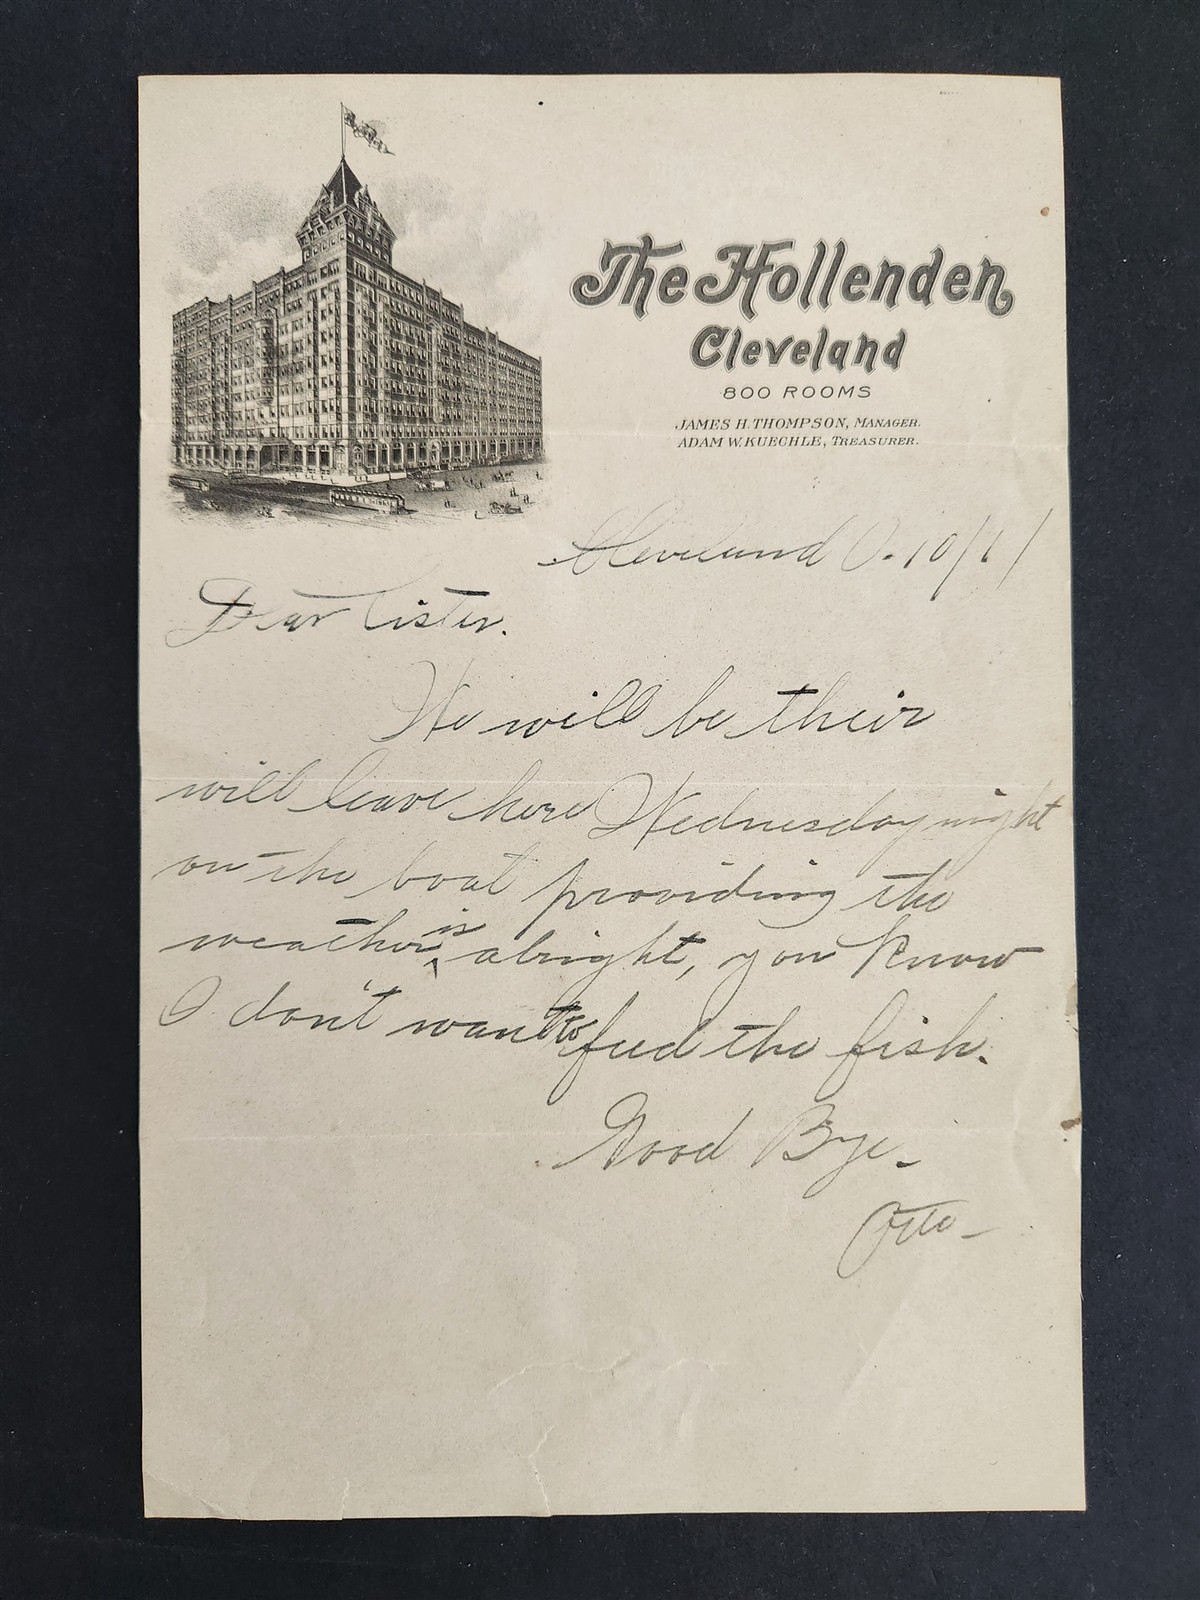 The Hollenden
Cleveland
800 ROOMS
JAMES H. THOMPSON, MANAGER.
ADAM W. KUECHLE, TREASURER.
Cleveland O. 10/1/
Dear Sister.
We will be their
will leave here Wednesday night
on the boat providing the
weather is alright, you know
I don't want to feed the fish.
Good Bye.
Otto